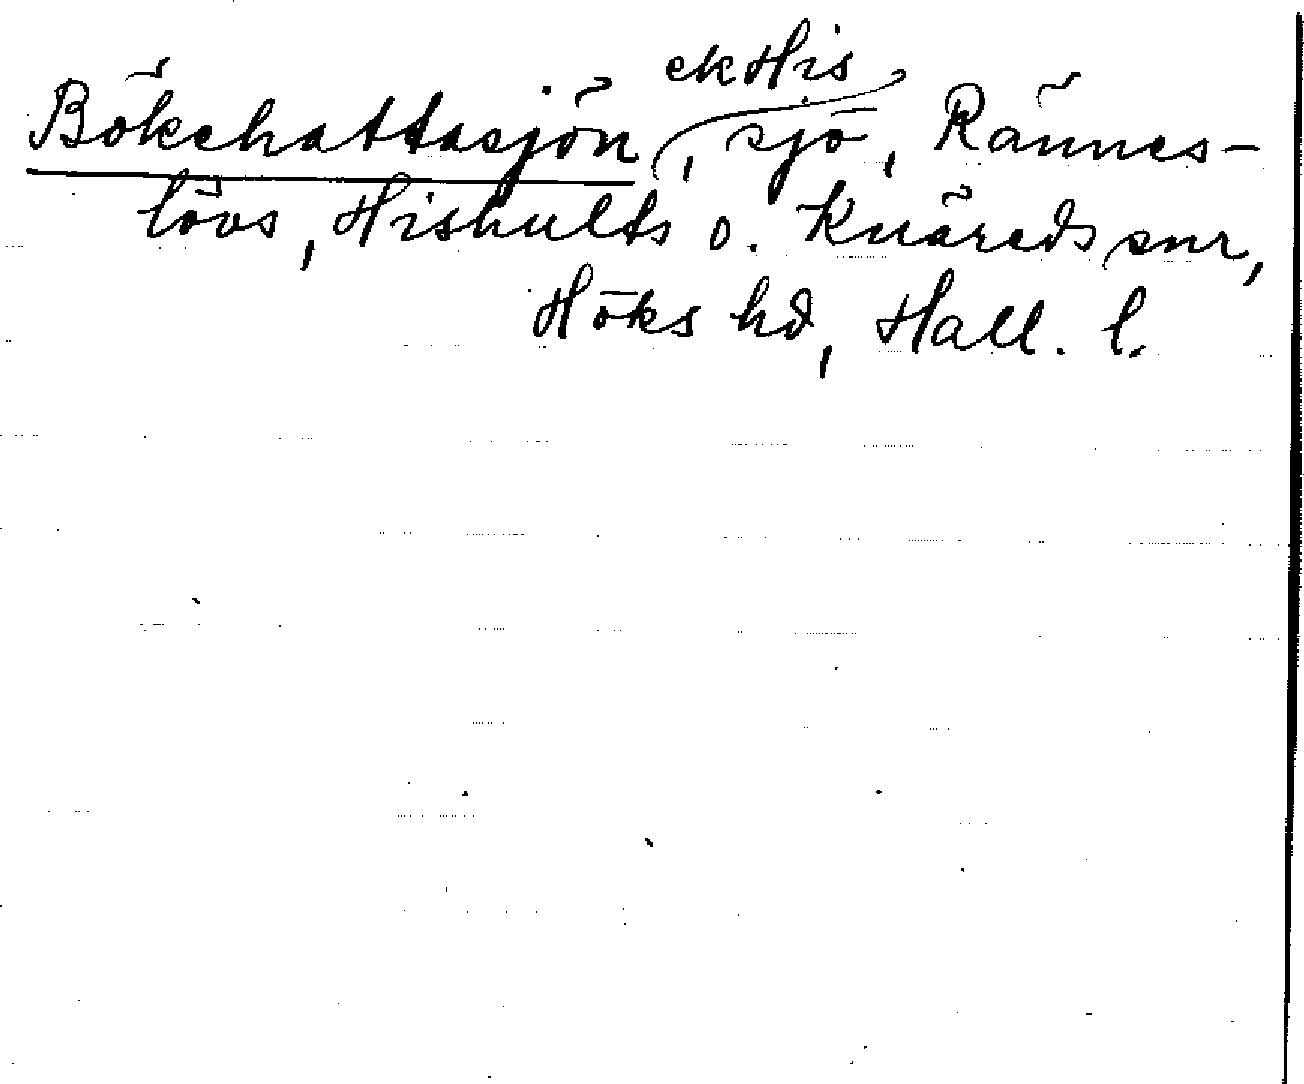 ek His
Bökehattasjön, sjö, Rännes-
lövs, Hishults o. Knäreds snr,
Höks hd, Hall. l.